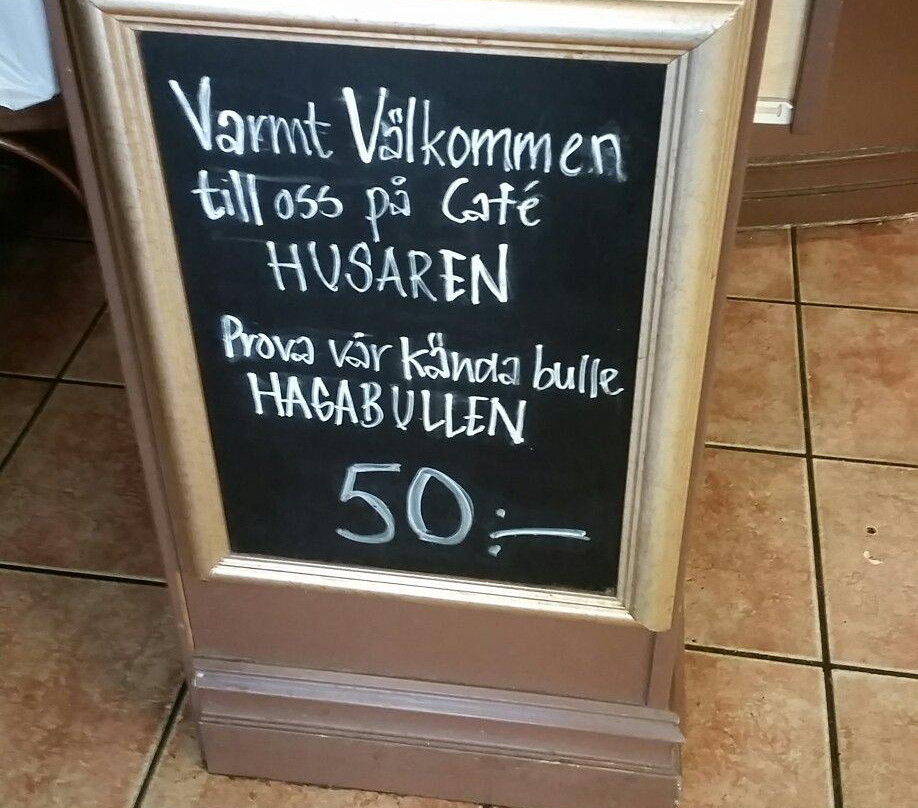 Varmt Välkommen
till oss på Café
HUSAREN
Prova vår kända bulle
HAGABULLEN
50:-